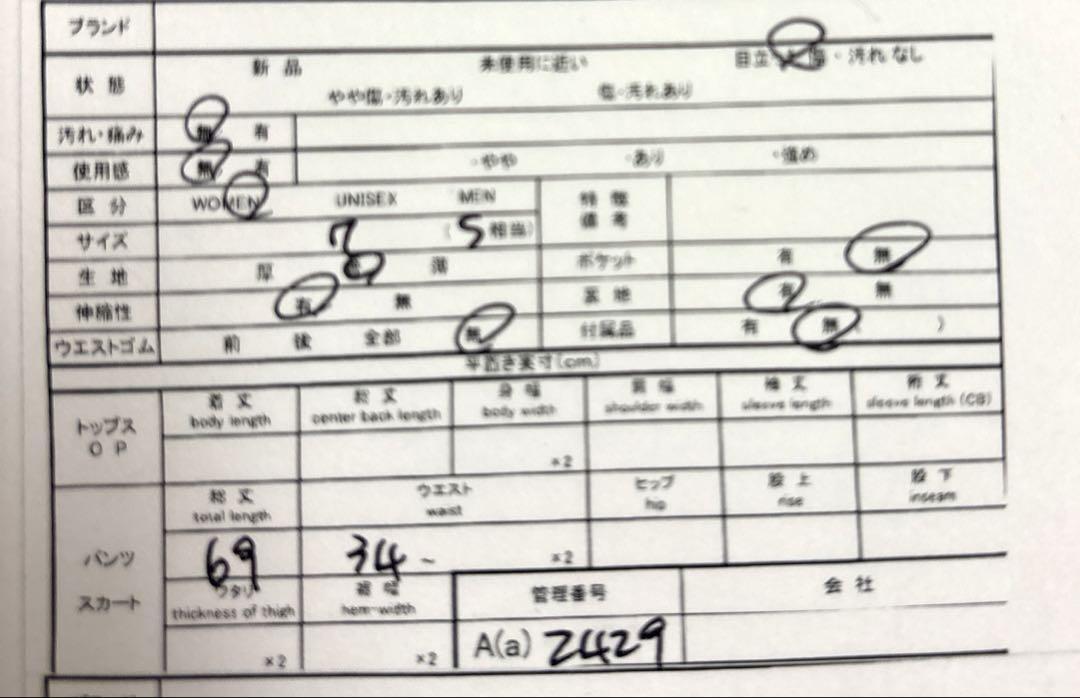 ブランド
状態 新品 未使用に近い 目立 傷・汚れなし
やや傷・汚れあり 傷・汚れあり
汚れ・痛み 無 有
使用感 無 有 ・やや ・あり ・強め
区分 WOMEN UNISEX MEN 特徴
備考
サイズ 7 (S相当)
生地 厚 薄 ポケット 有 無
伸縮性 有 無 裏地 有 無
ウエストゴム 前 後 全部 無 付属品 有 無( )
平置き実寸(cm)
トップス
OP
着丈 総丈 身幅 肩幅 袖丈 裄丈
body length center back length body width shoulder width sleeve length sleeve length (CB)
×2
総丈 ウエスト ヒップ 股上 股下
total length waist hip rise inseam
パンツ 69 34~ ×2
スカート ワタリ 裾幅 管理番号 会社
thickness of thigh hem-width
×2 ×2 A(a) 2429